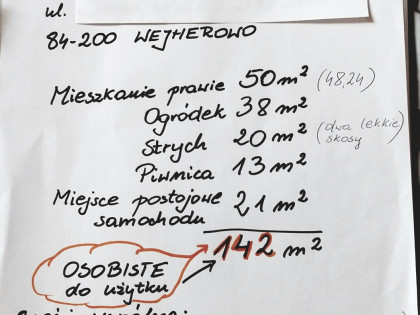 ul.
84-200 WEJHEROWO
Mieszkanie prawie 50 m² (48,24)
Ogródek 38 m²
Strych 20 m² (dwa lekkie skosy)
Piwnica 13 m²
Miejsce postojowe
samochodu 21 m²
142 m²
OSOBISTE
do użytku